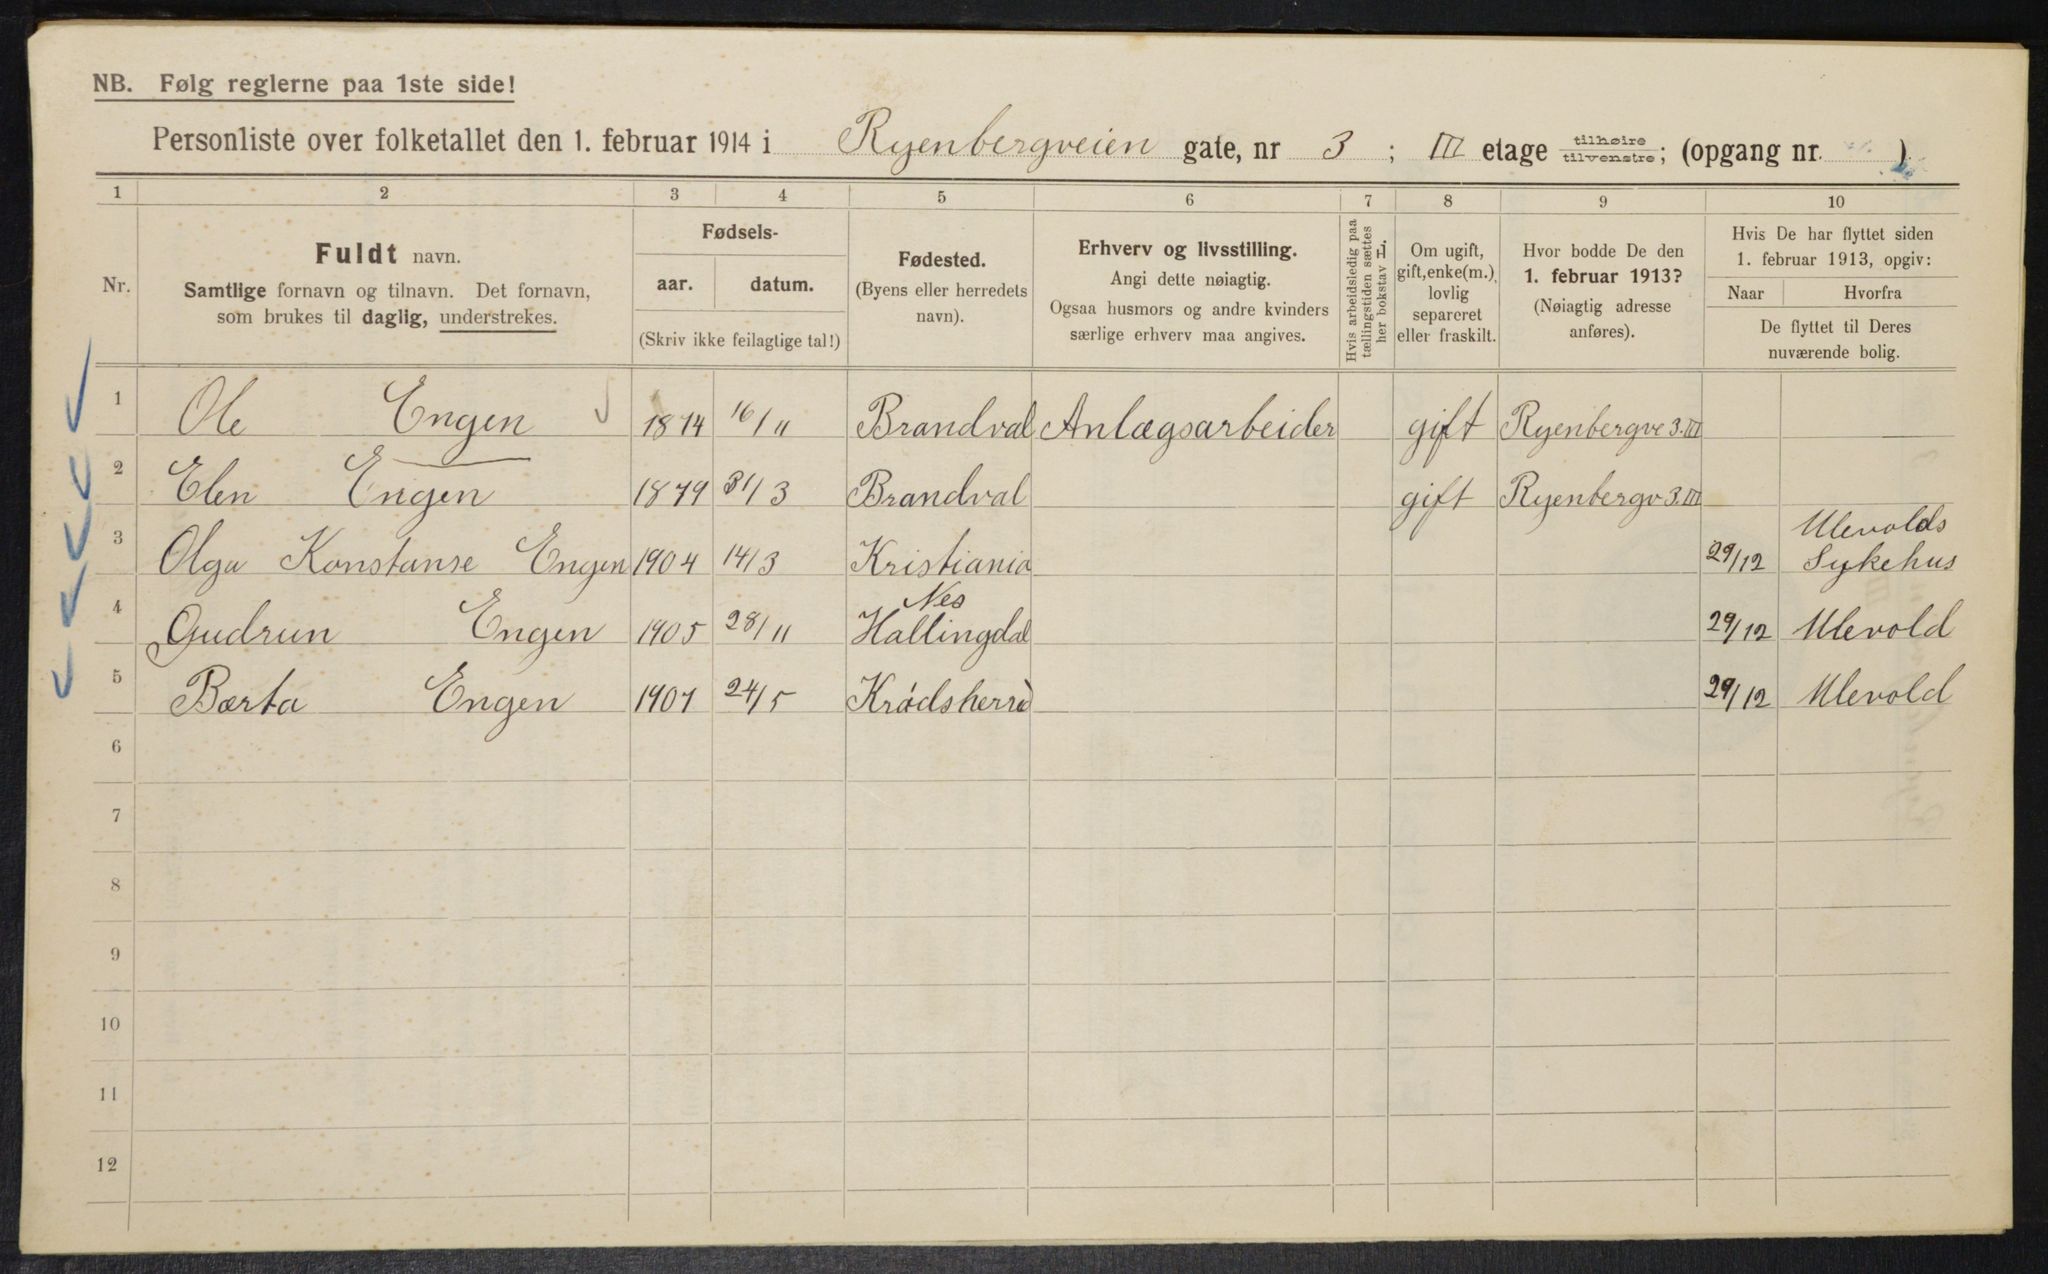 NB. Følg reglerne paa 1ste side!
Personliste over folketallet den 1. februar 1914 i Ryenbergveien gate, nr 3 ; III etage tilhøire/tilvenstre; (opgang nr. )
1 2 3 4 5 6 7 8 9 10
Nr.
Fuldt navn.
Samtlige fornavn og tilnavn. Det fornavn,
som brukes til daglig, understrekes.
Fødsels-
aar. datum.
(Skriv ikke feilagtige tal!)
Fødested.
(Byens eller herredets
navn).
Erhverv og livsstilling.
Angi dette nøiagtig.
Ogsaa husmors og andre kvinders
særlige erhverv maa angives.
Hvis arbeidsledig paa
tællingstiden sættes
her bokstav L.
Om ugift,
gift, enke(m.),
lovlig
separeret
eller fraskilt.
Hvor bodde De den
1. februar 1913?
(Nøiagtig adresse
anføres).
Hvis De har flyttet siden
1. februar 1913, opgiv:
Naar Hvorfra
De flyttet til Deres
nuværende bolig.
1 Ole Engen 1874 16/11 Brandval Anlægsarbeider gift Ryenbergve 3.III
2 Elen Engen 1879 31/3 Brandval gift Ryenbergv 3.III
3 Olga Konstanse Engen 1904 14/3 Kristiania 29/12 Ulevolds
Sykehus
4 Gudrun Engen 1905 28/11 Nes
Hallingdal 29/12 Ulevold
5 Bærta Engen 1907 24/5 Krødsherred 29/12 Ulevold
6
7
8
9
10
11
12